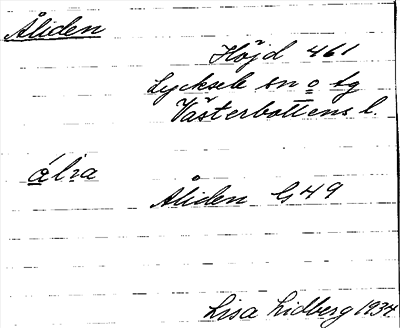 Åliden
Höjd 461
Lycksele sn o sg
Västerbottens l.
ália
Åliden G49
Lisa Lidberg 1934